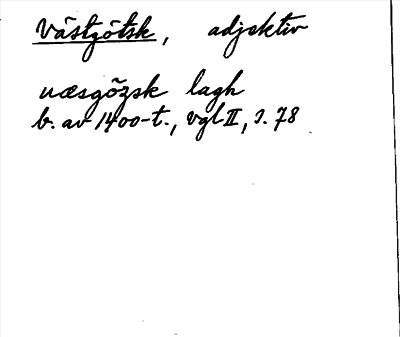 Västgötsk, adjektiv
uæsgõzsk lagh
b. av 1400-t., vgl II, s. 78